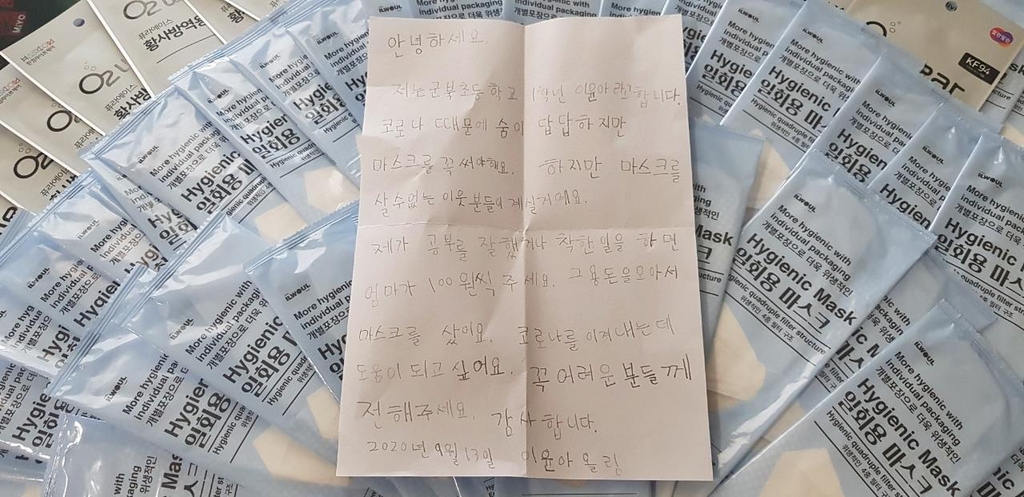 안녕하세요.
저는 군북초등학교 1학년 이윤아라고 합니다.
코로나 때문에 숨이 답답하지만
마스크를 꼭 써야해요. 하지만 마스크를
살수없는 이웃분들이 계실거에요.
제가 공부를 잘했거나 착한일을 하면
엄마가 100원씩 주세요. 그용돈을모아서
마스크를 샀어요. 코로나를 이겨내는데
도움이 되고 싶어요. 꼭 어려운분들께
전해주세요. 감사합니다.
2020년 9월 13일 이윤아 올림
ILWOUL
More hygienic with
individual packaging
개별포장으로 더욱 위생적인
Hygienic Mask
일회용 마스크
Hygienic quadruple filter structure
위생적인 4중 필터 구조
퓨리에이스
황사방역용
O2
KF94